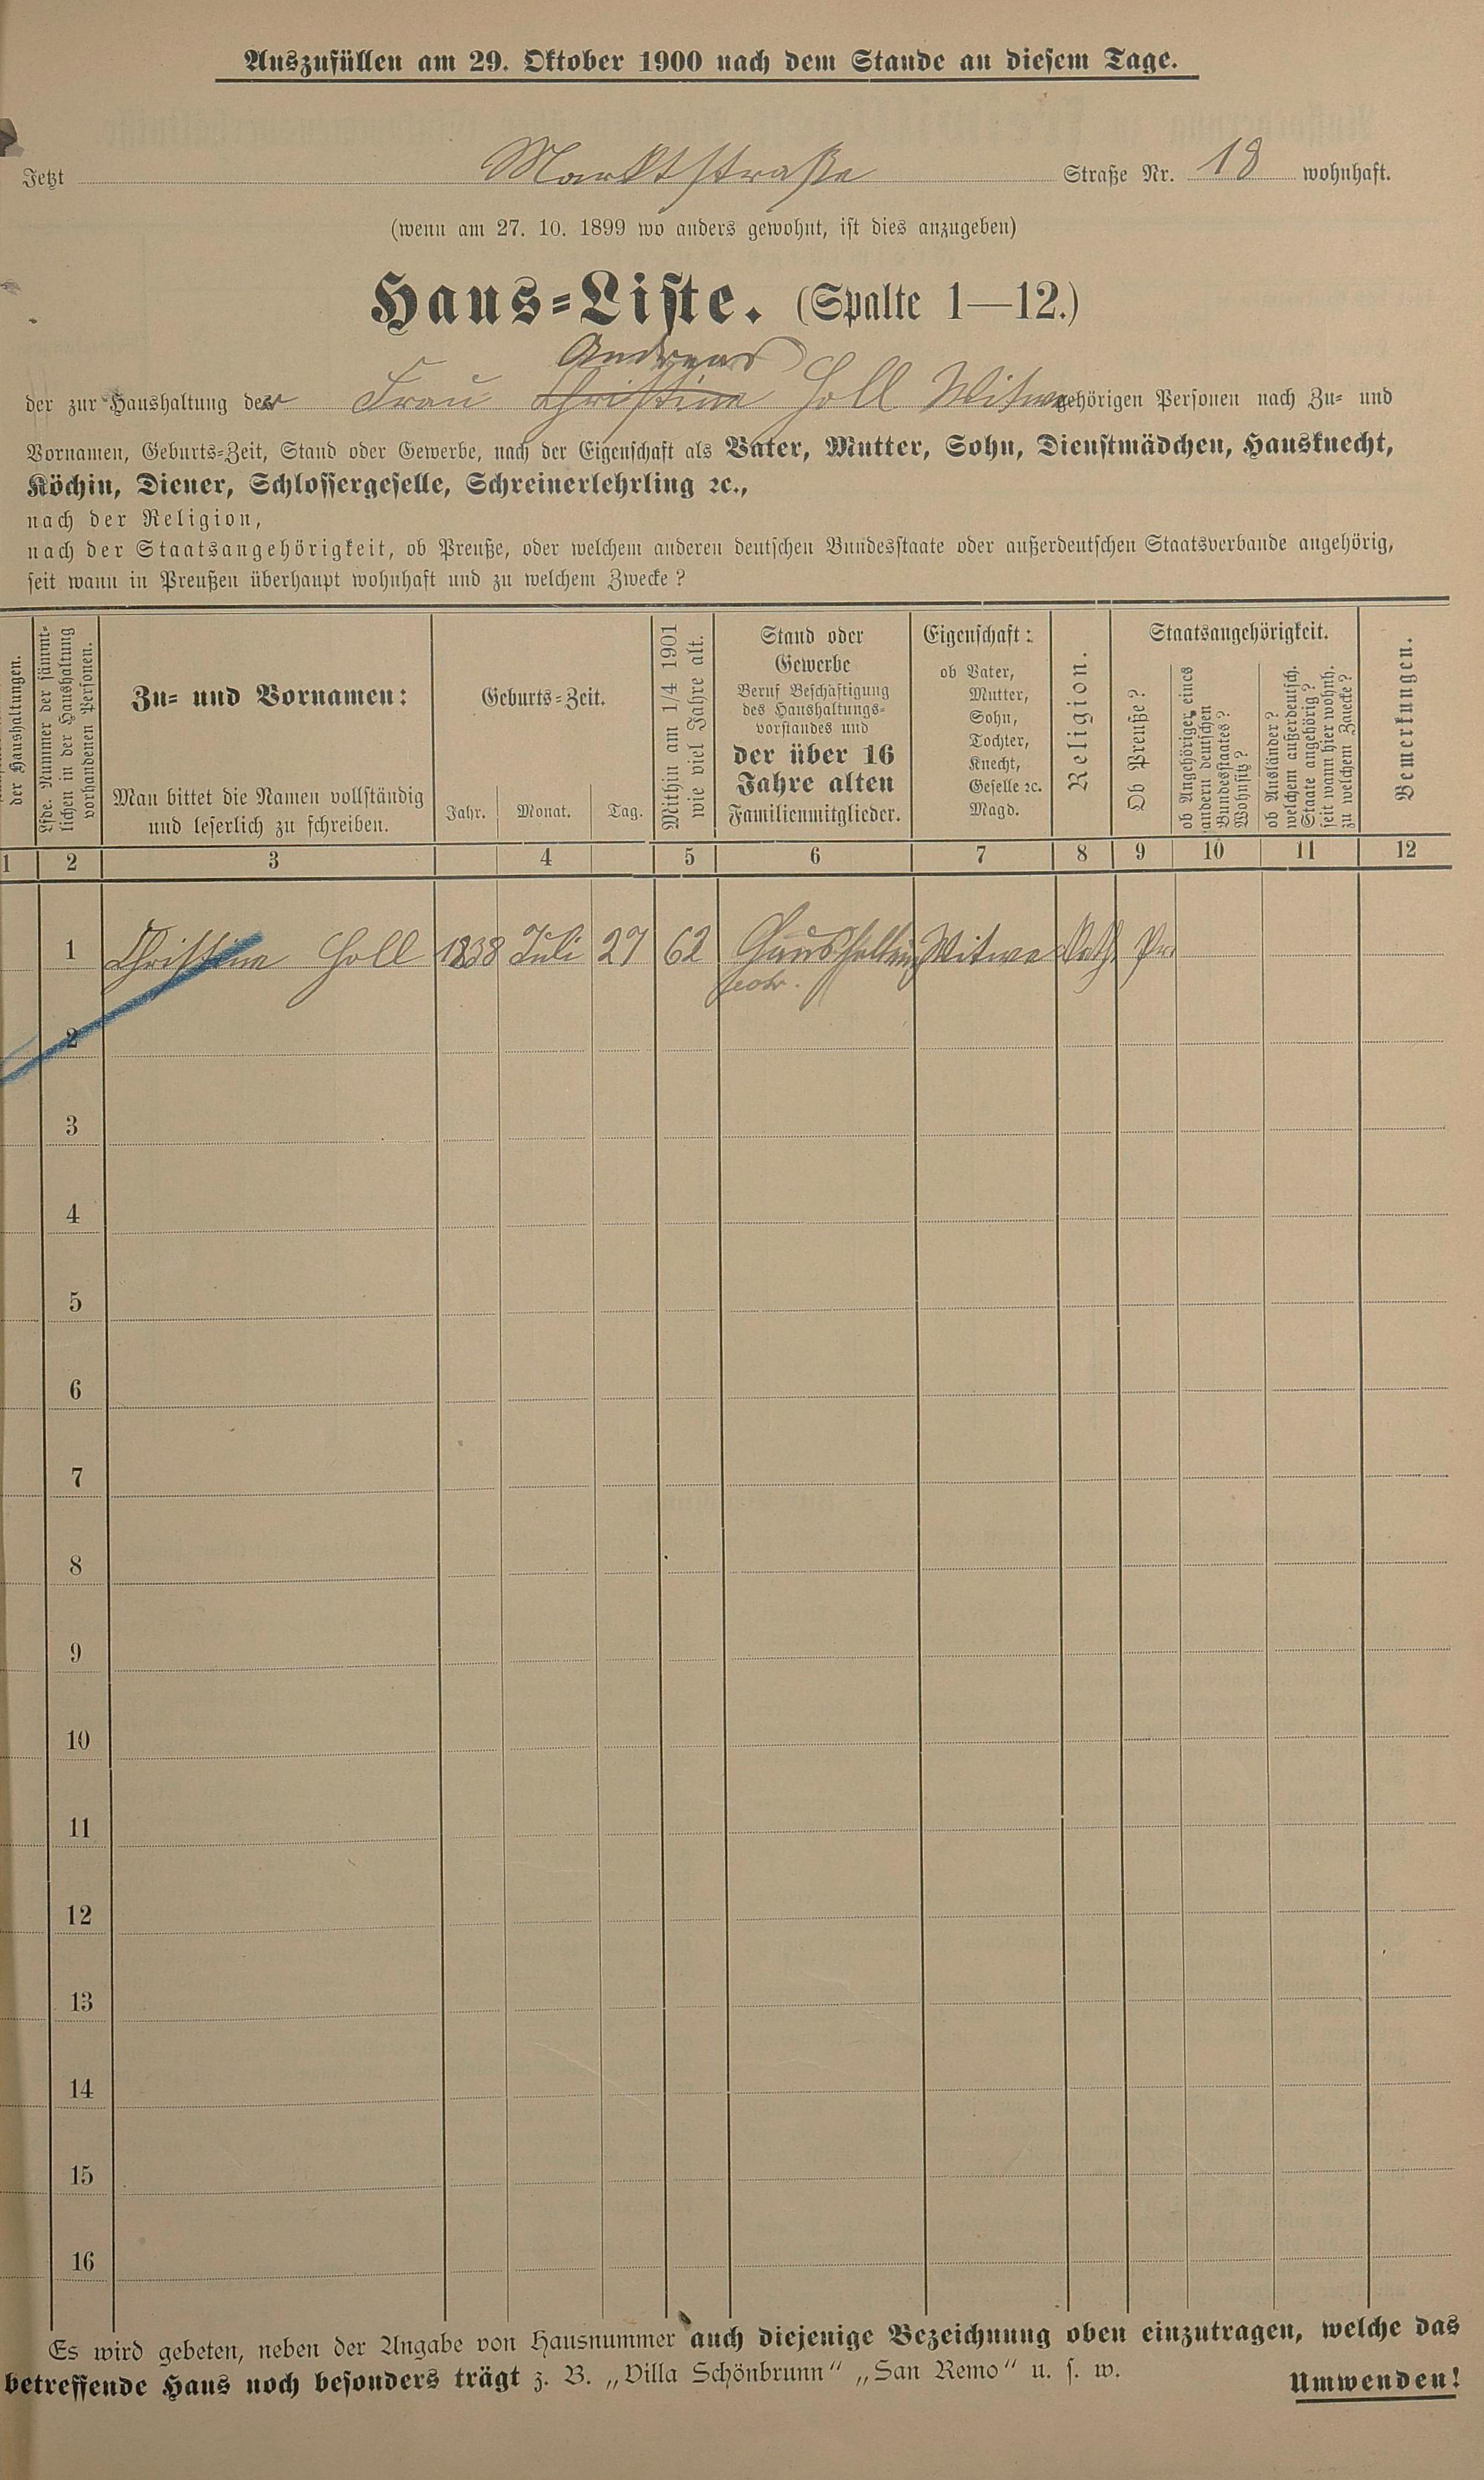 Auszufüllen am 29. Oktober 1900 nach dem Stande an diesem Tage.
Jetzt Marktstraße Straße Nr. 18 wohnhaft.
(wenn am 27. 10. 1899 wo anders gewohnt, ist dies anzugeben)
Haus-Liste. (Spalte 1—12.)
Andreas
der zur Haushaltung der Frau Christine Holl Witwe gehörigen Personen nach Zu- und
Vornamen, Geburts-Zeit, Stand oder Gewerbe, nach der Eigenschaft als Vater, Mutter, Sohn, Dienstmädchen, Hausknecht,
Köchin, Diener, Schlossergeselle, Schreinerlehrling ꝛc.,
nach der Religion,
nach der Staatsangehörigkeit, ob Preuße, oder welchem anderen deutschen Bundesstaate oder außerdeutschen Staatsverbande angehörig,
seit wann in Preußen überhaupt wohnhaft und zu welchem Zwecke?
der Haushaltungen.
Lfde. Nummer der sämmt-
lichen in der Haushaltung
vorhandenen Personen.
Zu- und Vornamen:
Man bittet die Namen vollständig
und leserlich zu schreiben.
Geburts-Zeit.
Jahr. Monat. Tag.
Mithin am 1/4 1901
wie viel Jahre alt.
Stand oder
Gewerbe
Beruf Beschäftigung
des Haushaltungs-
vorstandes und
der über 16
Jahre alten
Familienmitglieder.
Eigenschaft:
ob Vater,
Mutter,
Sohn,
Tochter,
Knecht,
Geselle ꝛc.
Magd.
Religion.
Staatsangehörigkeit.
Ob Preuße?
ob Angehöriger, eines
andern deutschen
Bundesstaates?
Wohnsitz?
ob Ausländer?
welchem außerdeutsch.
Staate angehörig?
seit wann hier wohnh.
zu welchem Zwecke?
Bemerkungen.
1 2 3 4 5 6 7 8 9 10 11 12
1 Christine Holl 1838 Juli 27 62 Witwe Kath. Pr.
2
3
4
5
6
7
8
9
10
11
12
13
14
15
16
Es wird gebeten, neben der Angabe von Hausnummer auch diejenige Bezeichnung oben einzutragen, welche das
betreffende Haus noch besonders trägt z. B. „Villa Schönbrunn“ „San Remo“ u. s. w.
Umwenden!